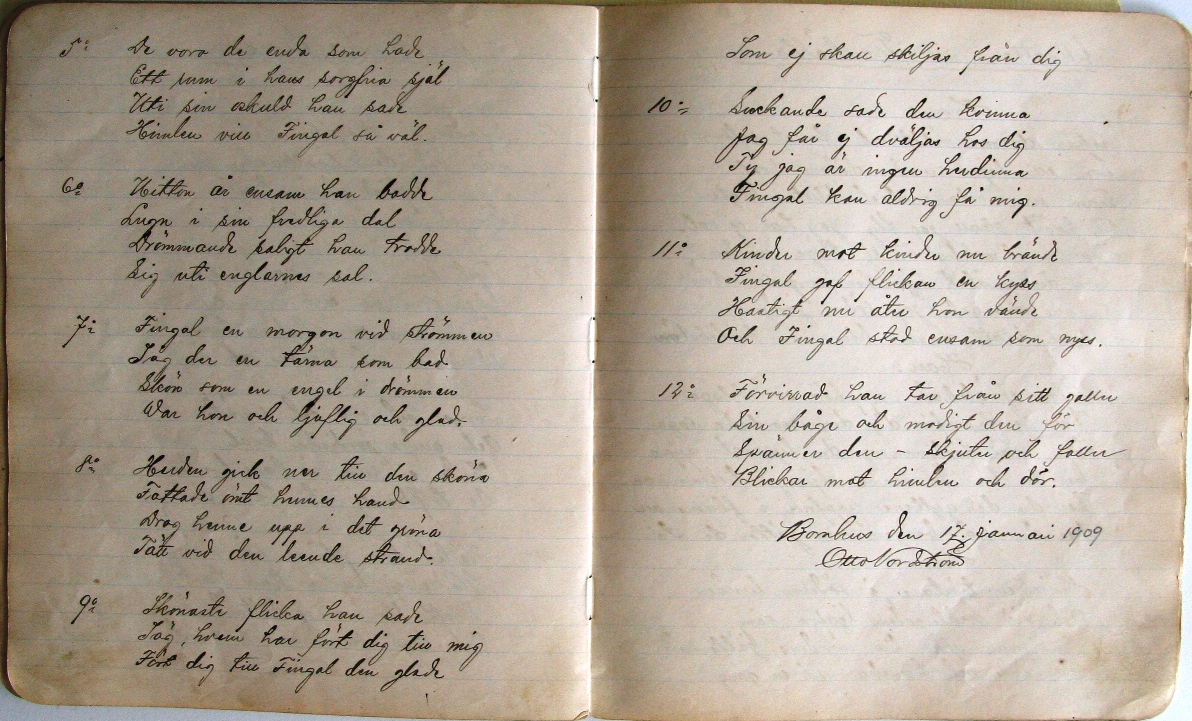 5:
De voro de enda som hade
Ett rum i hans sorgfria själ
Uti sin oskuld han sade
Himlen vill Fingal så väl.
6:
Nitton år ensam han bodde
Lugn i sin fredliga dal
Drömmande saligt han trodde
Sig uti englarnes sal.
7:
Fingal en morgon vid strömmen
Såg der en tärna som bad
Skön som en engel i drömmen
War hon och ljuflig och glad.
8:
Herden gick ner till den sköna
Fattade ömt hennes hand
Drog henne upp i det gröna
Tätt vid den leende strand.
9:
Skönaste flicka han sade
Säg, hvem har fört dig till mig
Fört dig till Fingal den glade
Som ej skall skiljas från dig
10:
Suckande sade den kvinna
Jag får ej dväljas hos dig
Ty jag är ingen herdinna
Fingal kan aldrig få mig.
11:
Kinder mot kinder nu brände
Fingal gaf flickan en kyss
Hastigt nu åter hon vände
Och Fingal stod ensam som nyss.
12:
Förvirrad han tar från sitt galler
Sin båge och modigt den för
Spänner den – skjuter och faller
Blickar mot himlen och dör.
Bornhus den 17. januari 1909
Otto Nordström